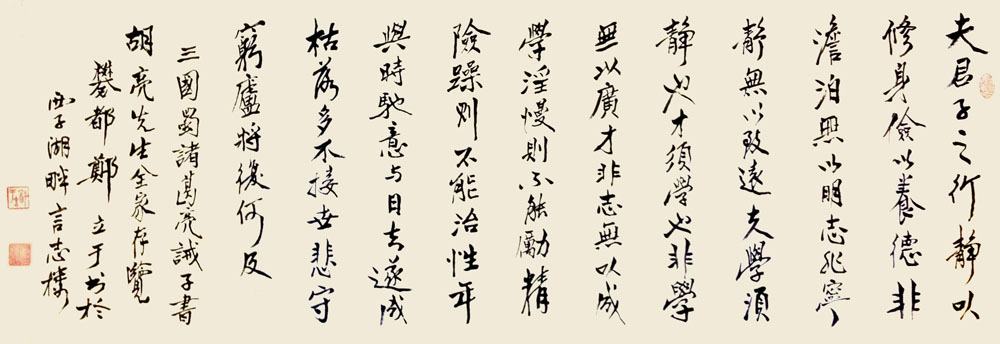 夫君子之行靜以
修身儉以養德非
澹泊無以明志非寧
靜無以致遠夫學須
靜也才須學也非學
無以廣才非志無以成
學淫慢則不能勵精
險躁則不能治性年
與時馳意与日去遂成
枯落多不接世悲守
窮廬將復何及
三國蜀諸葛亮誡子書
胡亮先生全家存覽
都鄭立于书於
西子湖畔言志樓